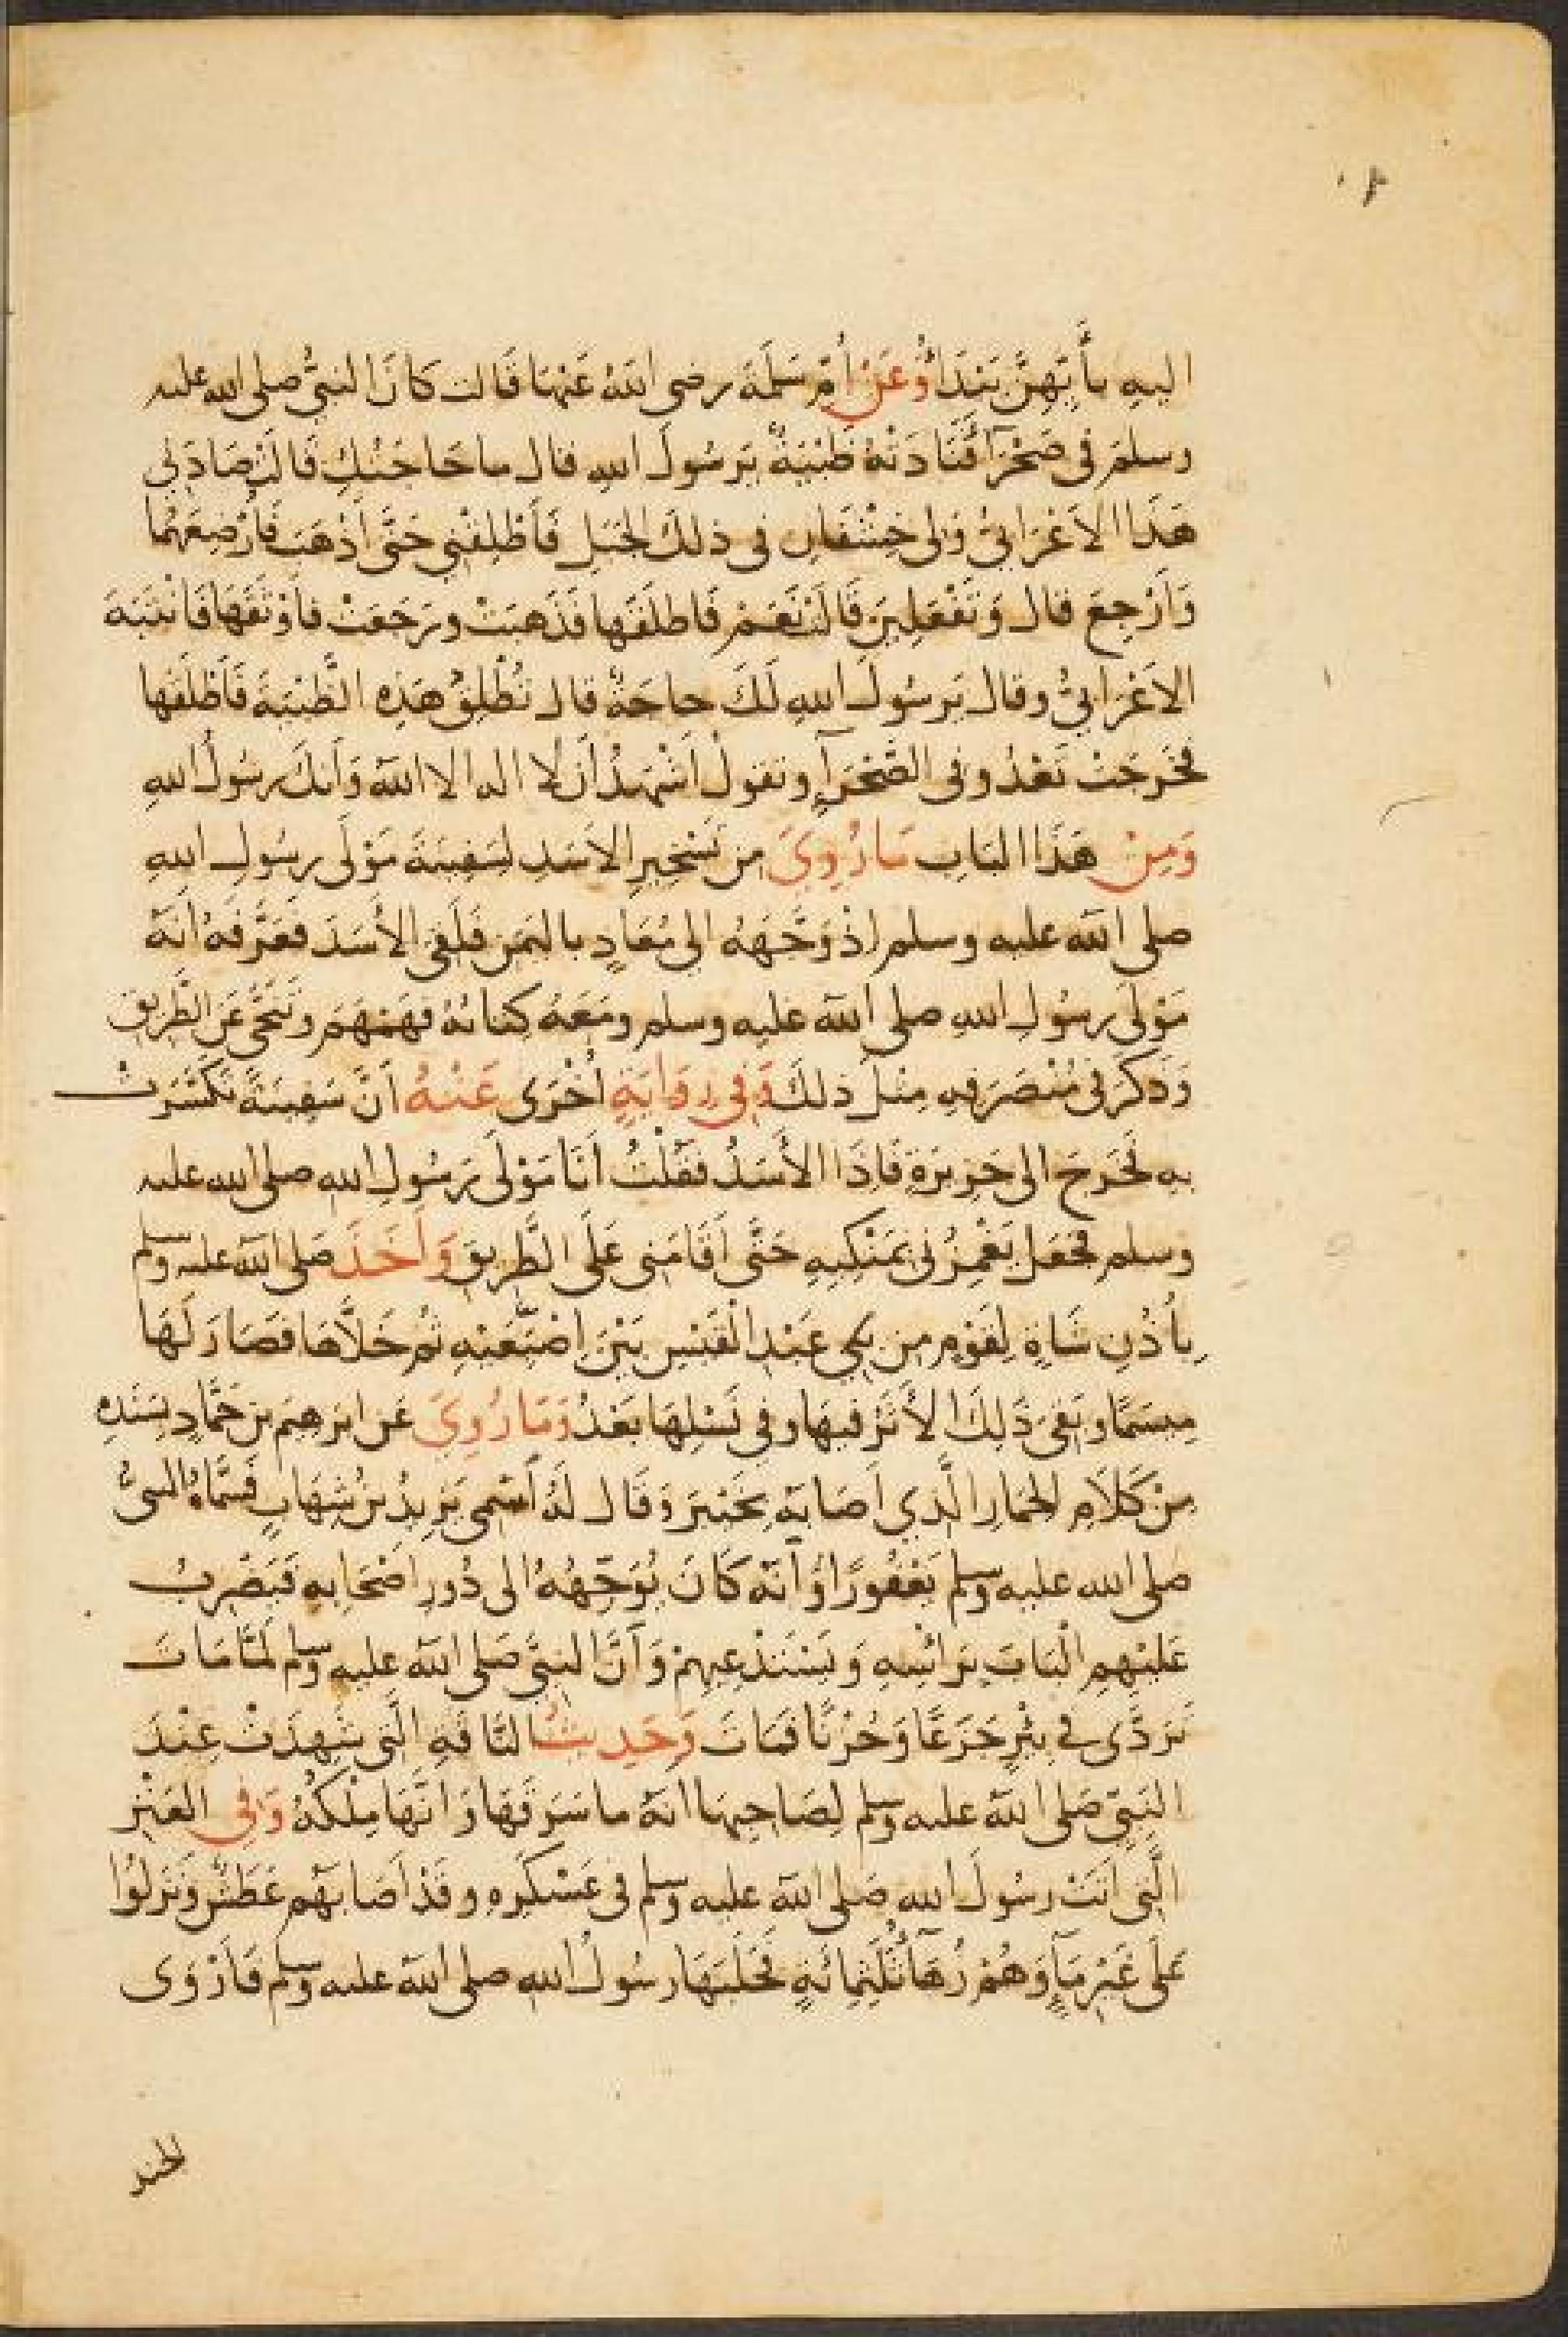 اليهِ بأَيَّهِنَّ يَبْدَأُ وَعَنْ أُمِّ سَلَمَةَ رضى اللهُ عَنْهَا قَالت كَانَ النبىُّ صلى الله عليه
وسلمَ فى صَحْرَآءَ فَنَادَتْهُ ظَبْيَةٌ يَرَسُولَ اللهِ قال ما حَاجَتُكِ قَالَتْ صَادَنِى
هَذَا الاَعْرَابِىُّ وَلِى خِشْفَانِ فى ذلكَ الجَبَلِ فَأَطْلِقْنِى حَتَّى أَذْهَبَ فَأُرْضِعَهُمَا
وَأَرْجِعَ قال وَتَفْعَلِينَ قَالَتْ نَعَمْ فَاطلَقَهَا فَذَهبَتْ ورَجَعَتْ فَأَوْثَقَهَا فَانْتَبَهَ
الاَعْرَابىُّ وقال يَرسُولَ اللهِ لَكَ حاجَةٌ قال تُطْلِقُ هَذِهِ الظَّبْيَةَ فَأَطْلَقَها
فخَرجَتْ تَعْدُو فى الصَّحْرَآءِ وتقولُ أَشْهَدُ أَن لا اله الا اللهُ وَأَنكَ رسُولُ اللهِ
وَمِنْ هَذَا البَابِ مَا رُوِىَ مِن تَسْخِيرِ الاَسَدِ لسَفِينَةَ مَوْلَى رسُولِ اللهِ
صلى اللهُ عليه وسلم إِذْ وَجَّهَهُ الى مُعَاذٍ باليَمَنِ فَلَقِىَ الأَسَدَ فَعَرَّفَهُ أَنَّهُ
مَوْلَى رسُولِ اللهِ صلى اللهُ عليه وسلم ومَعَهُ كِتابُهُ فَهَمْهَمَ وتَنَحَّى عَنِ الطَّرِيقِ
وَذكَرَ فى مُنْصَرَفِهِ مِثلَ ذلكَ وَفِى رِوَايَةٍ أُخْرَى عَنْهُ أَنَّ سَفِينَةً تَكَسَّرَتْ
بِهِ فخَرجَ الى جَزِيرَةٍ فَاِذَا الأَسَدُ فقُلْتُ أَنَا مَوْلَى رَسُولِ اللهِ صلى الله عليه
وسلم فجعَلَ يَغْمِزُنى بمَنْكِبِهِ حَتَّى أَقَامَنِى عَلَى الطَّرِيقِ وَأَخَذَ صَلى اللهُ عليه وسلم
بِأُذُنِ شَاةٍ لِقَوْمٍ مِن بَنِى عَبْدِ الْقَيْسِ بَيْنَ إِصْبَعَيْهِ ثُم خَلاَّهَا فَصَارَ لَهَا
مِيسَمًا وبَقِىَ ذَلِكَ الأَثَرُ فيهَا وفى نَسْلِهَا بَعْدُ وَمَا رُوِىَ عَن ابرَهِيمَ بنِ حَمَّادٍ بِسَنَدِهِ
مِنْ كَلَامِ الحِمَارِ الَّذِي أَصَابَهُ بخَيْبَرَ وَقَال لَهُ اسْمِى يَزِيدُ بْنُ شِهَابٍ فَسَمَّاهُ النبىُّ
صلى الله عليه وسلم يَعْفُورًا وَأَنَّهُ كَانَ يُوَجِّهُهُ الى دُورِ اصْحَابِهِ فَيَضْرِبُ
عَلَيْهِمِ الْبَابَ بِرَاْسِهِ وَيَسْتَدْعِيهِمْ وَأَنَّ النبىَّ صَلى اللهُ عليه وسلم لمَّا مَاتَ
تَرَدَّى في بِئْرٍ جَزَعًا وَحُزْنًا فَمَاتَ وَحَدِيثُ النَّاقَةِ الَّتِى شَهِدَتْ عِنْدَ
النَّبِىِّ صَلى اللهُ عليه وسلم لِصَاحِبِهَا انَّهُ ما سَرَقَهَا وَانَّهَا مِلْكُهُ وَفِى العَنْزِ
الَّتِى أَتَتْ رسُولَ الله صَلى اللهُ عليه وسلم فى عَسْكَرِهِ وقَدْ أَصَابَهُم عَطَشٌ وَنَزَلُوا
عَلَى غَيْرِ مَآءٍ وَهُمْ زُهَآءُ ثَلَثِمِائَةٍ فَحَلَبَهَا رسُولُ اللهِ صلى اللهُ عليه وسلم فَأَرْوَى
الجند